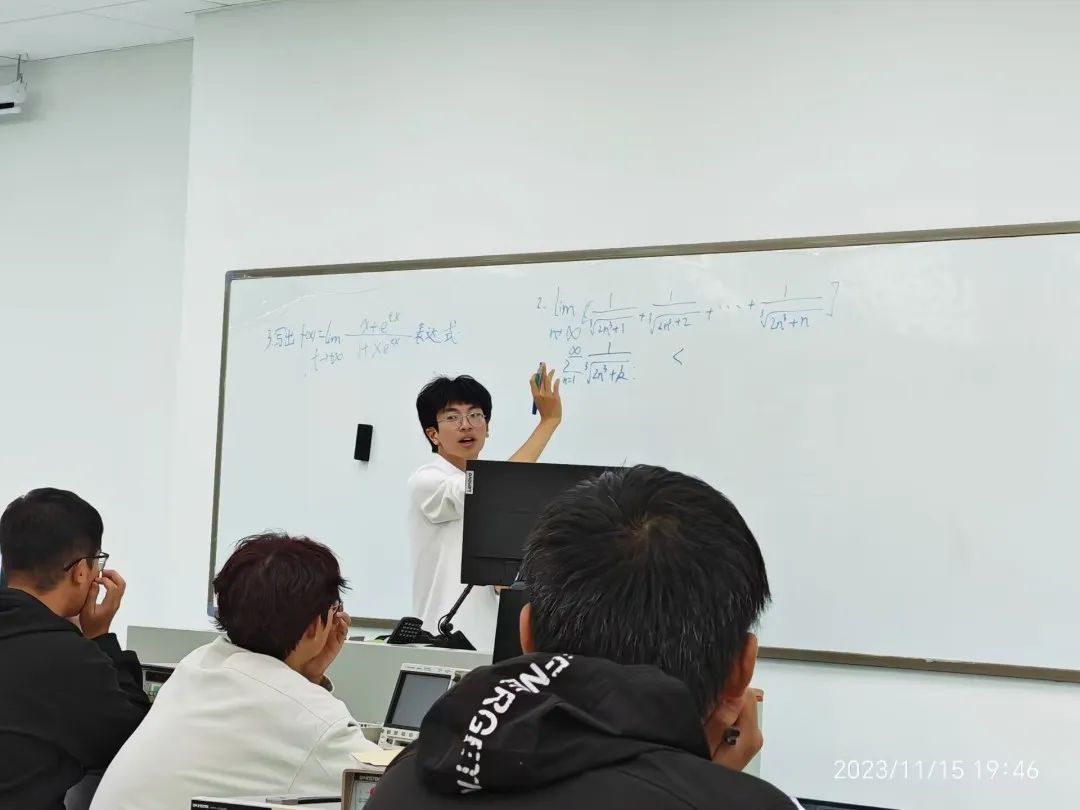 3.写出 f(x)=lim t→+∞ (x+e^{tx})/(1+xe^{tx}) 表达式
2. lim n→∞ [1/∛(2n³+1) + 1/∛(2n³+2) + ··· + 1/∛(2n³+n)]
∞ Σ n=1 1/∛(2n³+k) <
ENERGETI
2023/11/15 19:46